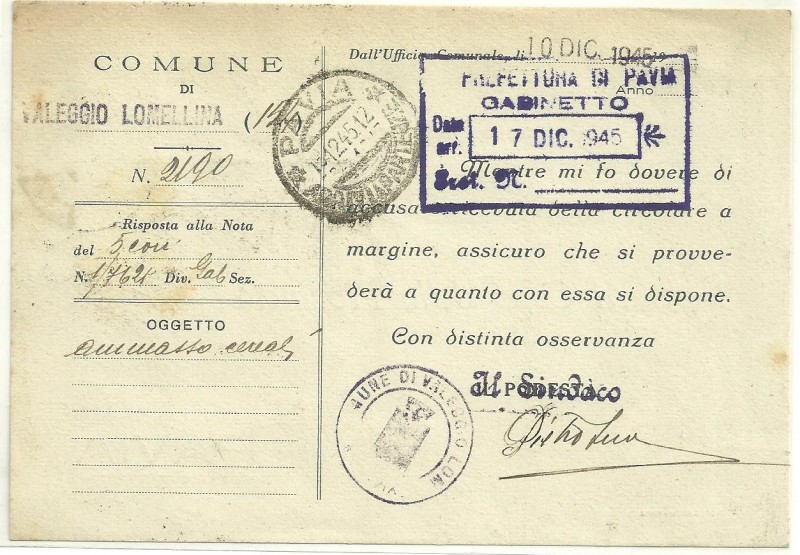 COMUNE
DI
VALEGGIO LOMELLINA
N. 2190
Risposta alla Nota
del 5 corr
N. 17625 Div. Gab Sez.
OGGETTO
ammasso cereali
PAVIA
Dall'Ufficio Comunale, li 10 DIC. 1945 19
Anno
PREFETTURA DI PAVIA
GABINETTO
Data
arr. 17 DIC. 1945
Prot. N.
Mentre mi fo dovere di
accusar ricevuta della circolare a
margine, assicuro che si provve-
derà a quanto con essa si dispone.
Con distinta osservanza
IL PODESTÀ
Il Sindaco
MUNE DI VALEGGIO LOM